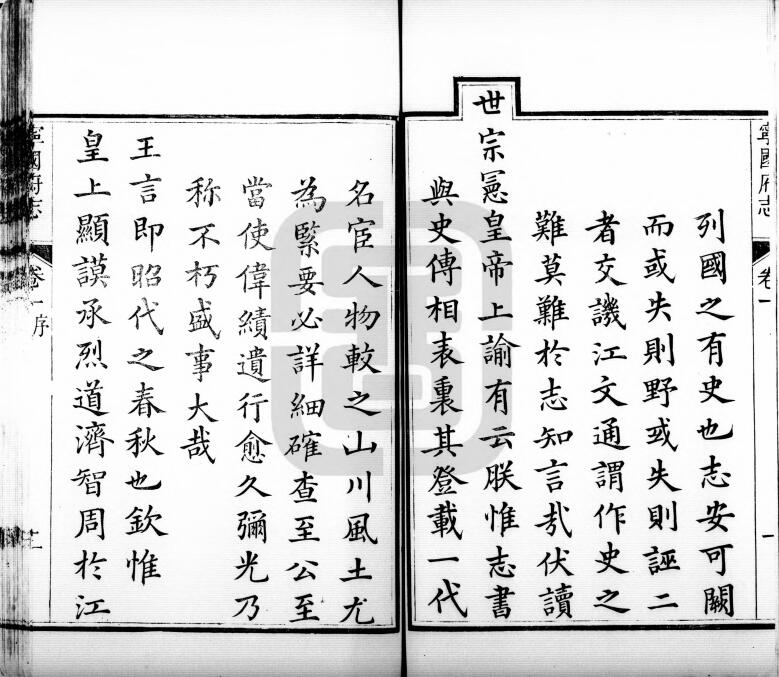 寧國府志
卷一
一
列國之有史也志安可闕
而或失則野或失則誣二
者交譏江文通謂作史之
難莫難於志知言哉伏讀
世宗憲皇帝上諭有云朕惟志書
與史傳相表裏其登載一代
名宦人物較之山川風土尤
為緊要必詳細確查至公至
當使偉績遺行愈久彌光乃
称不朽盛事大哉
王言即昭代之春秋也欽惟
皇上顯謨承烈道濟智周於江
寧國府志
卷一序